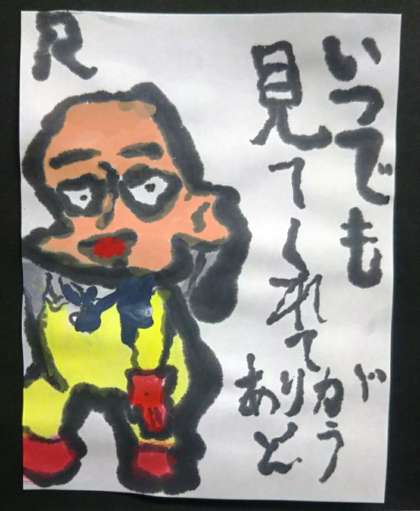 いつでも
見てくれて
ありが
とう
R